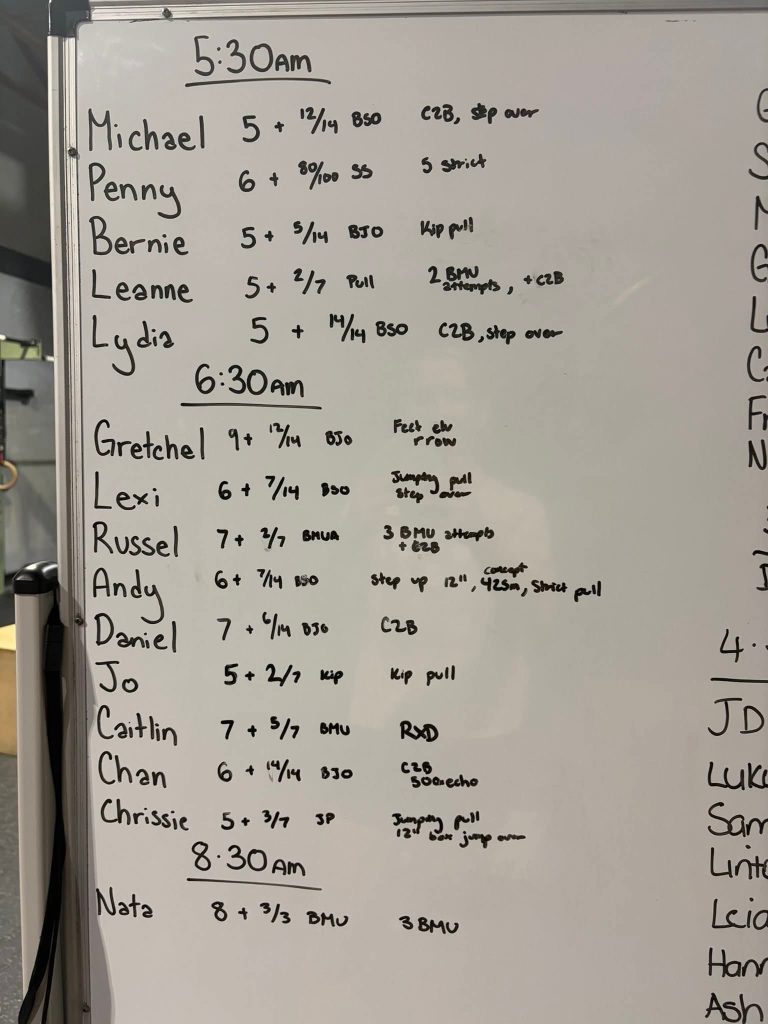 5:30AM
Michael 5 + 12/14 BSO C2B, step over
Penny 6 + 80/100 SS 5 strict
Bernie 5 + 5/14 BJO Kip pull
Leanne 5 + 2/7 Pull 2 BMU attempts, + C2B
Lydia 5 + 14/14 BSO C2B, step over
6:30AM
Gretchel 9 + 12/14 BJO Feet elv
rrow
Lexi 6 + 7/14 BSO Jumping pull
step over
Russel 7 + 2/7 BMUA 3 BMU attempts
+ C2B
Andy 6 + 7/14 BSO step up 12", concept 425m, strict pull
Daniel 7 + 6/14 BJO C2B
Jo 5 + 2/7 Kip Kip pull
Caitlin 7 + 5/7 BMU RXD
Chan 6 + 14/14 BJO C2B
500m echo
Chrissie 5 + 3/7 JP Jumping pull
12" box jump over
8:30AM
Nata 8 + 3/3 BMU 3 BMU
4
JD
Luk
Sam
Lint
Leia
Hann
Ash